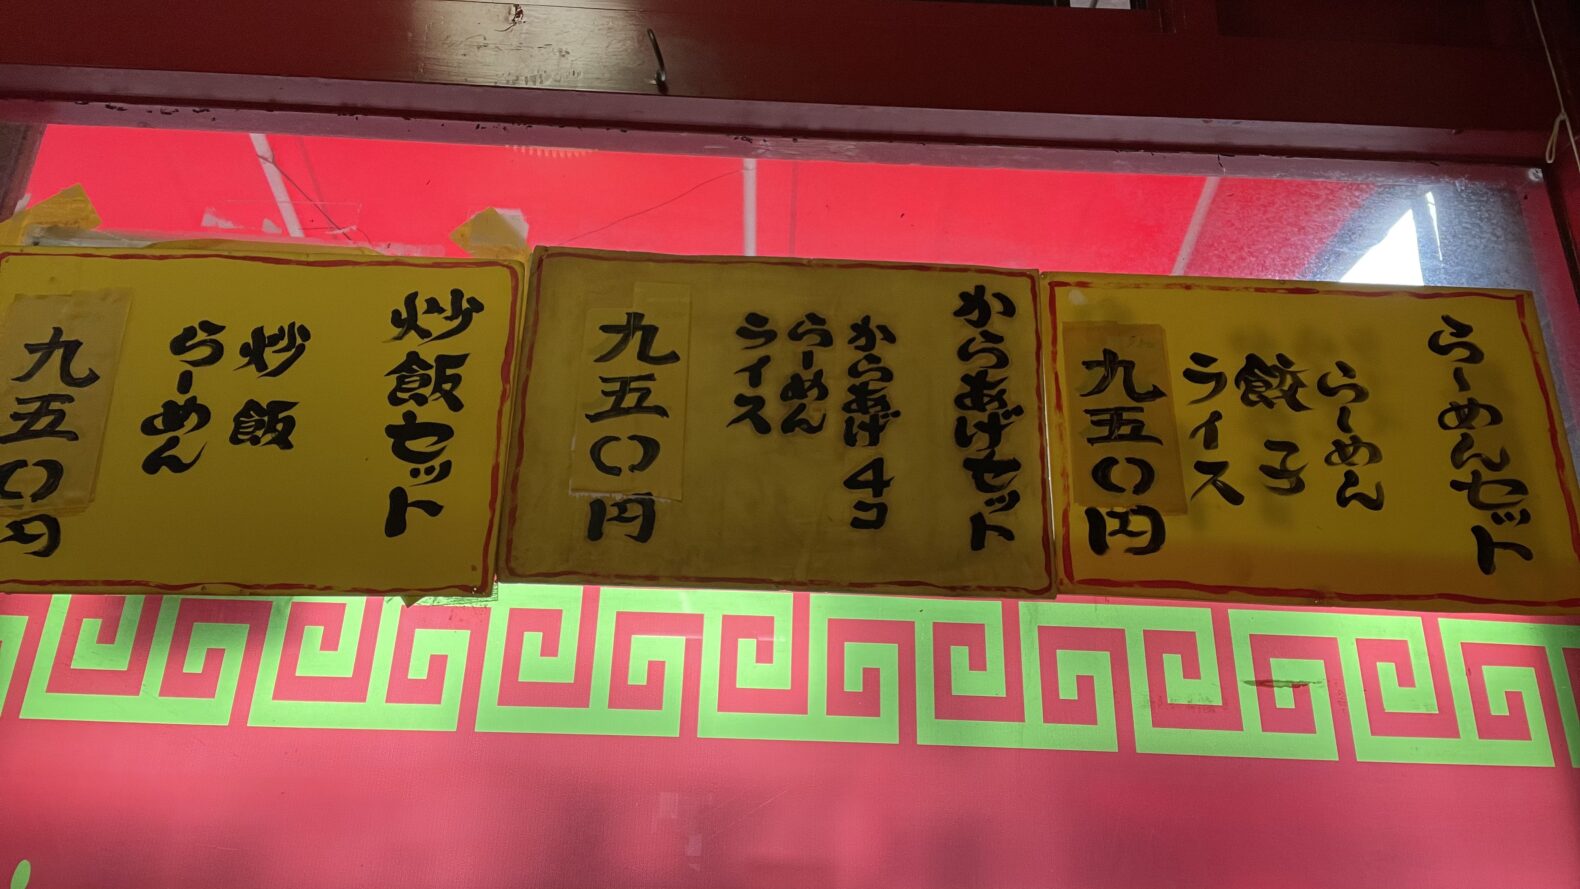 らーめんセット
らーめん
餃子
ライス
九五〇円
からあげセット
からあげ4コ
らーめん
ライス
九五〇円
炒飯セット
炒飯
らーめん
九五〇円